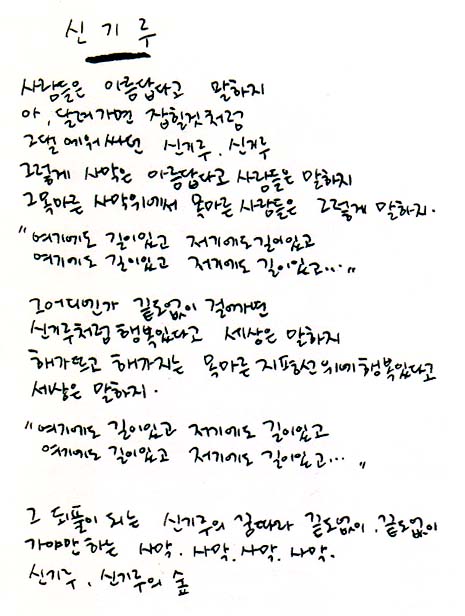 신 기 루
사람들은 아름답다고 말하지
아, 달려가면 잡힐것처럼
그댈 에워싸던 신기루, 신기루
그렇게 사막은 아름답다고 사람들은 말하지
그 목마른 사막위에서 목마른 사람들은 그렇게 말하지.
“여기에도 길이있고 저기에도 길이있고
여기에도 길이있고 저기에도 길이있고...”
그 어디엔가 끝도없이 걸어가면
신기루처럼 행복있다고 세상은 말하지
해가뜨고 해가지는 목마른 지평선위에 행복있다고
세상은 말하지.
“여기에도 길이있고 저기에도 길이있고
여기에도 길이있고 저기에도 길이있고... ”
그 되풀이 되는 신기루의 꿈따라 끝도없이, 끝도없이
가야만 하는 사막, 사막, 사막, 사막.
신기루, 신기루의 숲